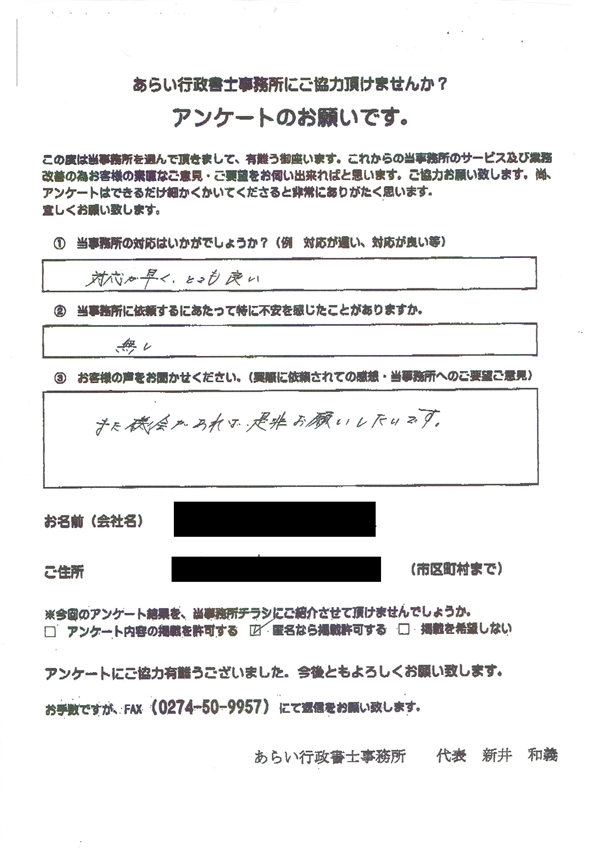 あらい行政書士事務所にご協力頂けませんか？
アンケートのお願いです。
この度は当事務所を選んで頂きまして、有難う御座います。これからの当事務所のサービス及び業務
改善の為お客様の素直なご意見・ご要望をお伺い出来ればと思います。ご協力お願い致します。尚、
アンケートはできるだけ細かくかいてくださると非常にありがたく思います。
宜しくお願い致します。
① 当事務所の対応はいかがでしょうか？（例　対応が遅い、対応が良い等）
対応が早く、とても良い
② 当事務所に依頼するにあたって特に不安を感じたことがありますか。
無し
③ お客様の声をお聞かせください。（実際に依頼されての感想・当事務所へのご要望ご意見）
また機会があれば、是非お願いしたいです。
お名前（会社名）
ご住所
（市区町村まで）
※今回のアンケート結果を、当事務所チラシにご紹介させて頂けませんでしょうか。
□ アンケート内容の掲載を許可する ☑ 匿名なら掲載許可する □ 掲載を希望しない
アンケートにご協力有難うございました。今後ともよろしくお願い致します。
お手数ですが、FAX（0274-50-9957）にて返信をお願い致します。
あらい行政書士事務所　代表　新井　和義